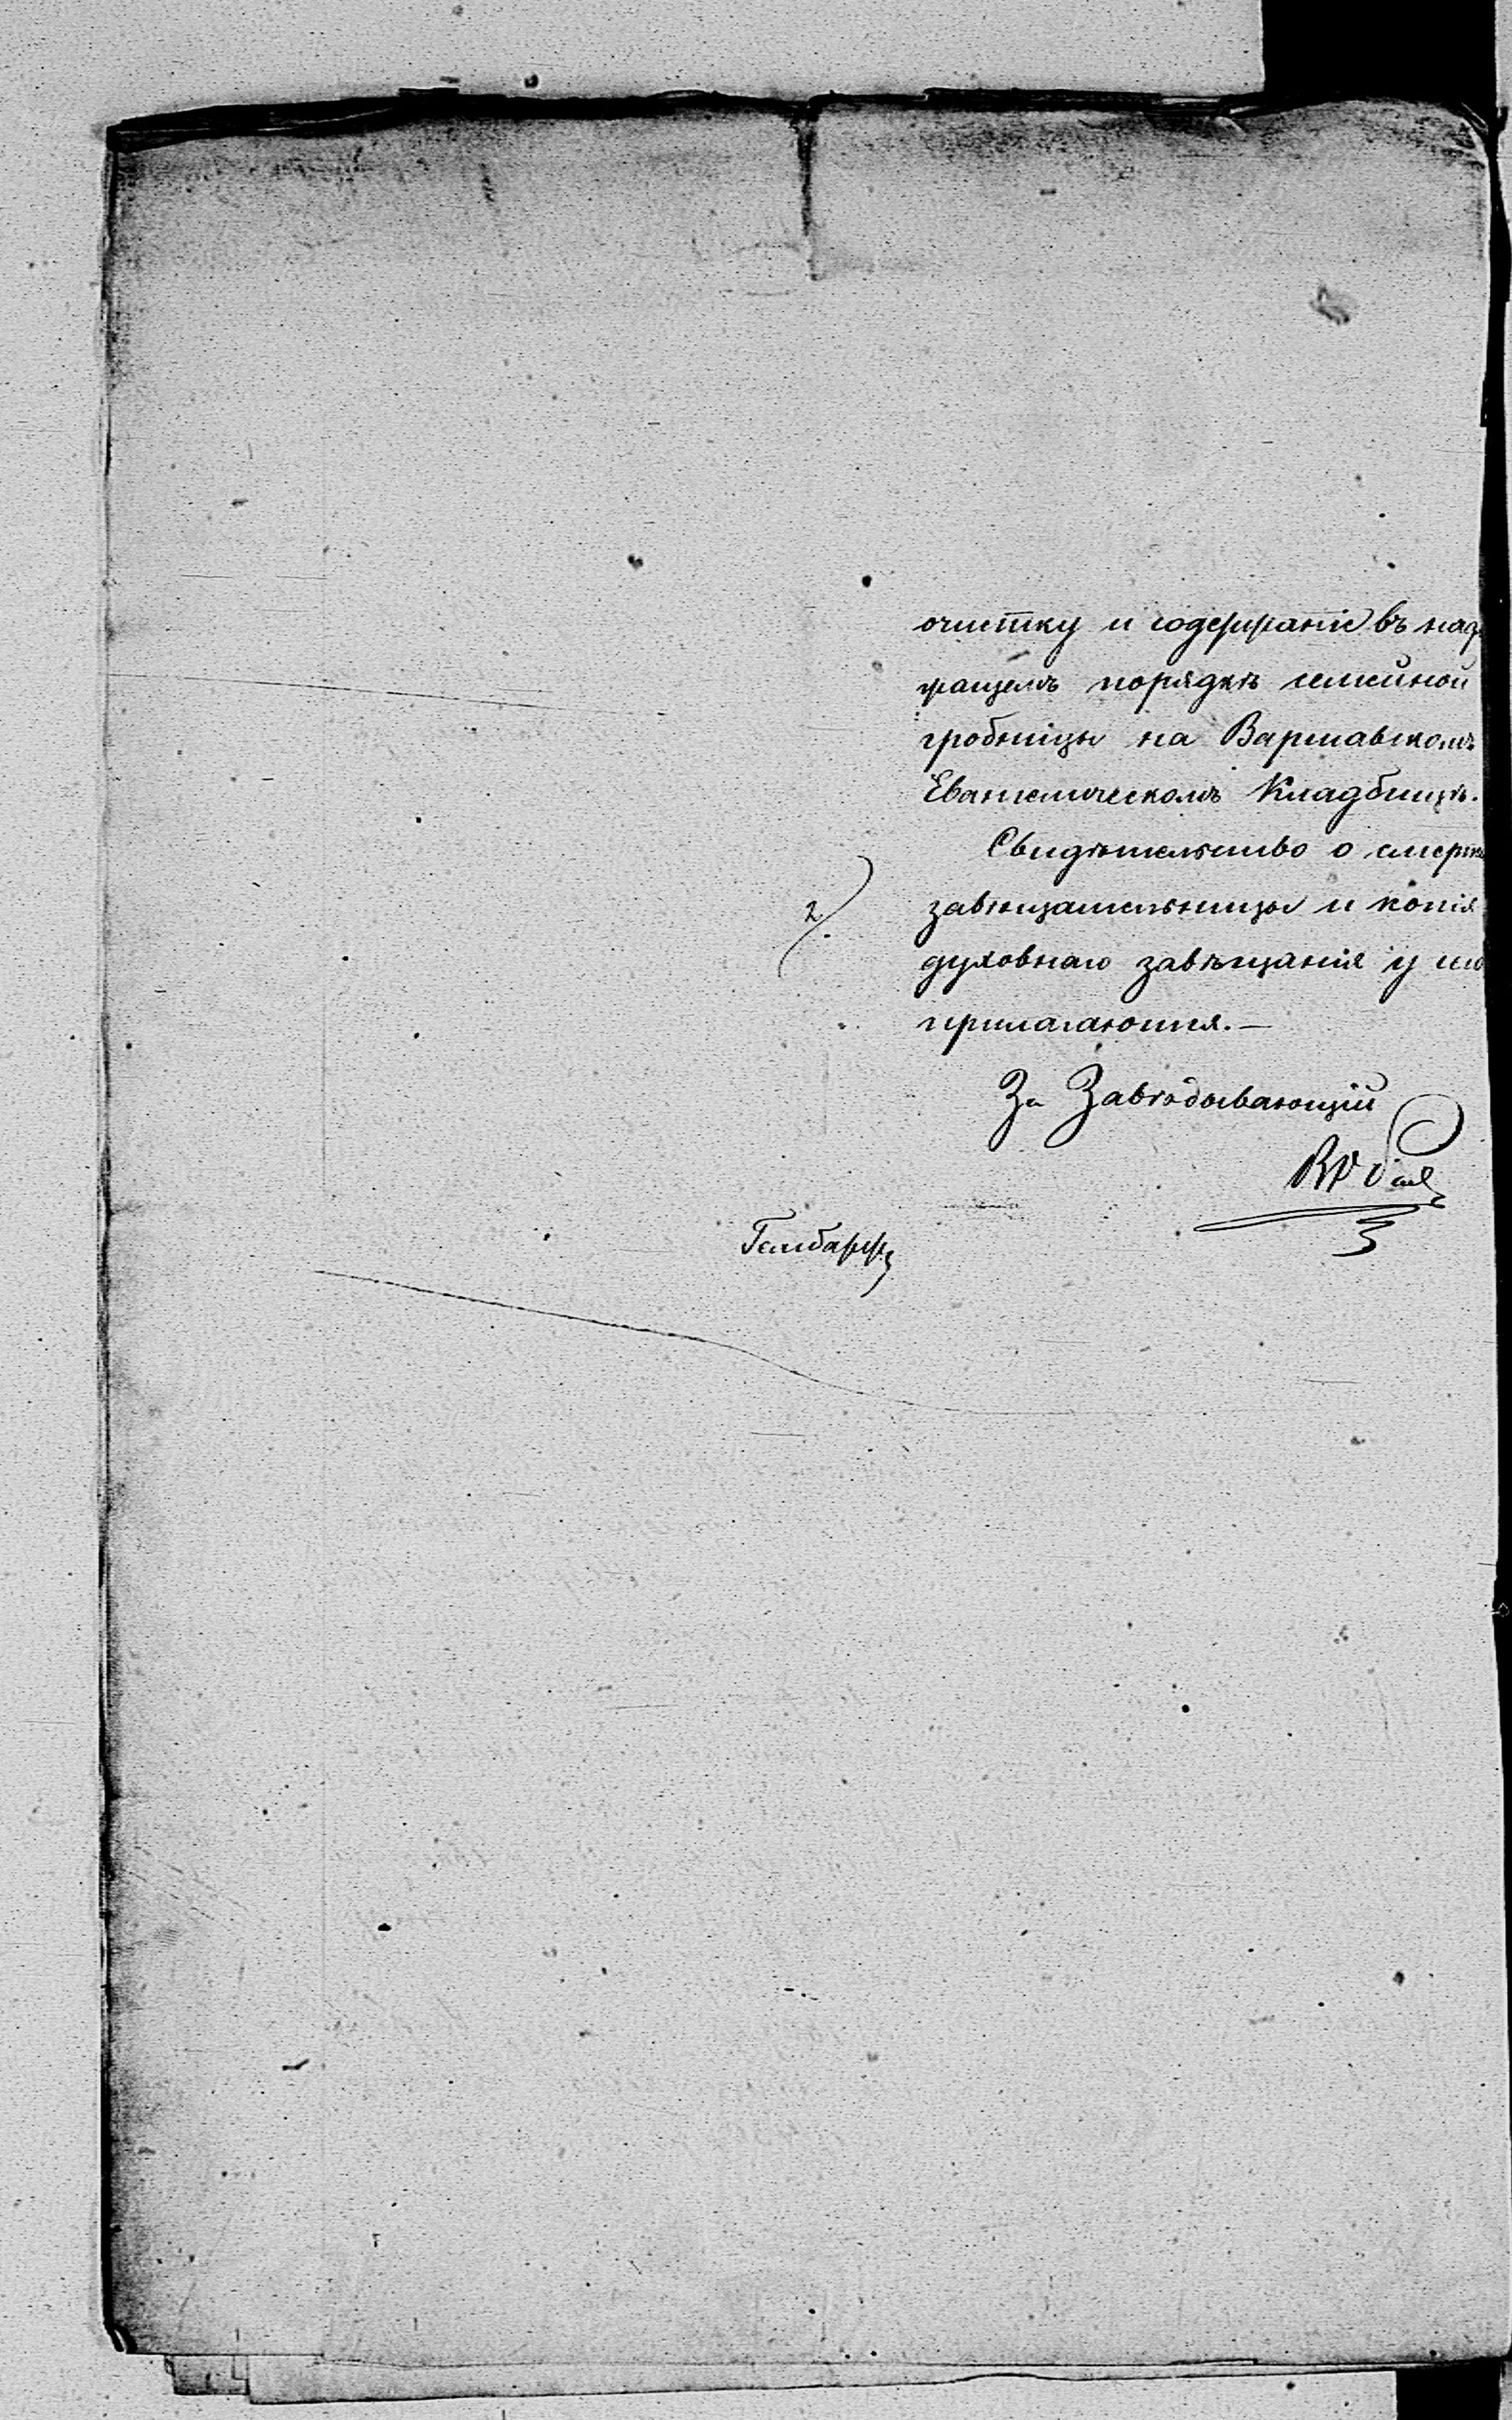 очистку и содержаніе въ надл
жащемъ порядкѣ семейной
гробницы на Варшавскомъ
Евангелическомъ Кладбищѣ.
Свидѣтельство о смерти
завѣщательницы и копія
2
духовнаго завѣщанія у сего
прилагаются.—
За Завѣдывающій